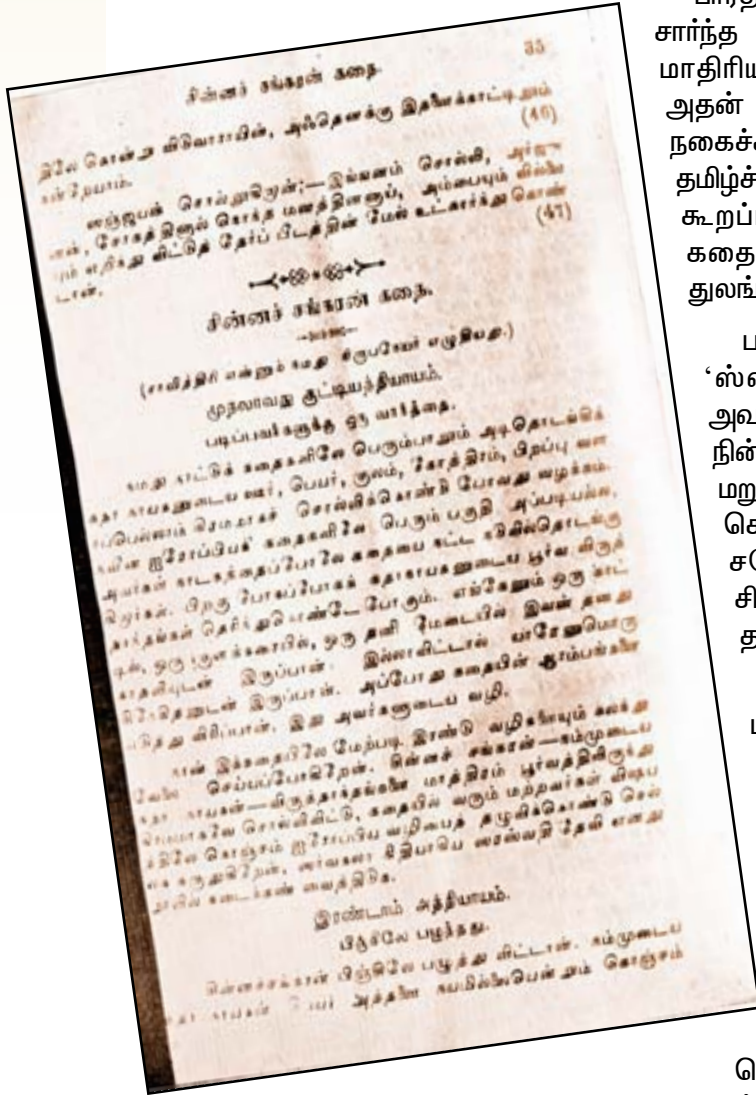 சின்னச் சங்கரன் கதை. 35
திலே கொன்று விடுவாராயின், அஃதெனக்கு இதனைக்காட்டிலும்
நன்றேயாம். (46)
ஸஞ்ஜயன் சொல்லுகிறான்;—இங்ஙனம் சொல்லி, அர்ஜு
னன், சோகத்தினால் கொந்த மனத்தினனாய், அம்பையும் வில்லை
யும் எறிந்து விட்டுத் தேர்ப் பீடத்தின் மேல் உட்கார்ந்து கொண்
டான். (47)
சின்னச் சங்கரன் கதை.
(சாவித்திரி என்னும் நமது எழுதியது.)
முதலாவது குட்டியத்தியாயம்.
படிப்பவர்களுக்கு ஒரு வார்த்தை.
நமது நாட்டுக் கதைகளிலே பெரும்பாலும் அடிதொடங்கிக்
கதா நாயகனுடைய ஊர், பெயர், குலம், கோத்திரம், பிறப்பு வள
ர்ப்பெல்லாம் கிரமமாகச் சொல்லிக்கொண்டு போவது வழக்கம்.
நவீன ஐரோப்பியக் கதைகளிலே பெரும் பகுதி அப்படியல்ல.
அவர்கள் நாடகத்தைப்போலே கதையை நட்ட நடுவில்தொடங்கு
கிறார்கள். பிறகு போகப்போகக் கதாநாயகனுடைய பூர்வ விருத்
தாந்தங்கள் தெரிந்துகொண்டே போகும். எங்கேனும் ஒரு காட்
டில், ஒரு குளக்கரையில், ஒரு தனி மேடையில் இவன் தனது
காதலியுடன் இருப்பான். இல்லாவிட்டால் யாரேனுமொரு
சிநேகிதனுடன் இருப்பான். அப்போது கதையின் ஆரம்பங்களை
எடுத்து விரிப்பான். இது அவர்களுடைய வழி.
நான் இக்கதையிலே மேற்படி இரண்டு வழிகளையும் கலந்து
வேலை செய்யப்போகிறேன். சின்னச் சங்கரன்—நம்முடைய
கதா நாயகன்—விருத்தாந்தங்களை மாத்திரம் பூர்வத்திலிருந்து
கிரமமாகவே சொல்லிவிட்டு, கதையில் வரும் மற்றவர்கள் விஷய
த்திலே கொஞ்சம் ஐரோப்பிய வழியைத் தழுவிக்கொண்டு செல்
லக் கருதுகிறேன், ஸர்வகலா நிதியாயெ ஸரஸ்வதி தேவி எனது
நாவில் கடைக்கண் வைத்திடுக.
இரண்டாம் அத்தியாயம்.
பிஞ்சிலே பழுத்தது.
சின்னச்சங்கரன் பிஞ்சிலே பழுத்து விட்டான். நம்முடைய
கதா நாயகன் பெயர் அத்தனை நயமில்லையென்றும் கொஞ்சம்
சார்ந்த
அதன்
‘ஸ்